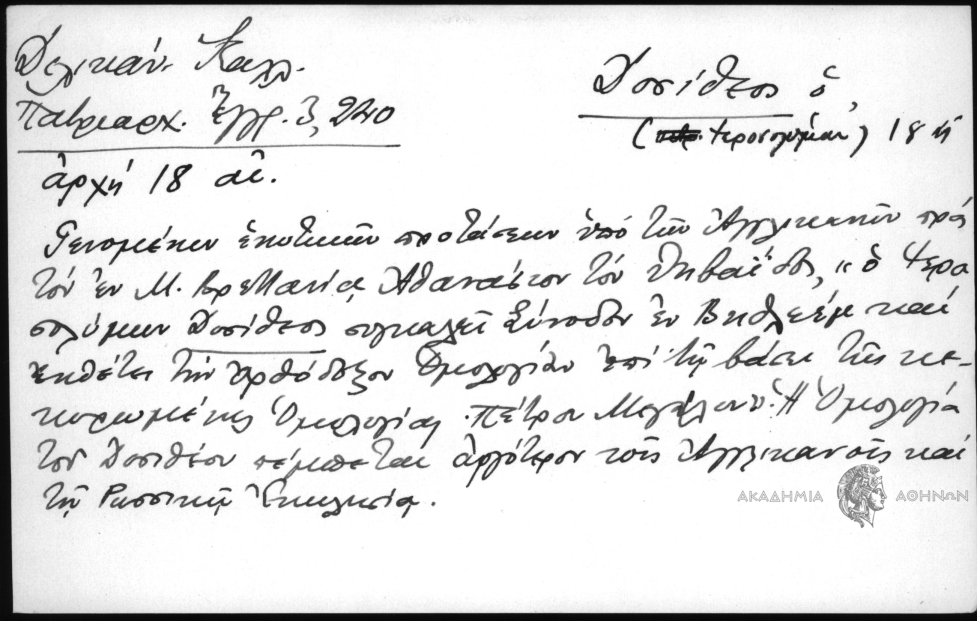 Δελικάν. Καλλ.
Πατριαρχ. Ἔγγρ. 3, 240
Δοσίθεος ὁ,
(Ἱεροσολύμων) 18 
ἀρχή 18 αἰ.
Γενομένων ἑνωτικῶν προτάσεων ὑπό τῶν Ἀγγλικανῶν πρός
τόν ἐν Μ. Βρεττανίᾳ Ἀθανάσιον τόν Θηβαΐδος, "ὁ Ἱερο
σολύμων Δοσίθεος συγκαλεῖ Σύνοδον ἐν Βηθλεέμ καί
ἐκθέτει τήν ὀρθόδοξον Ὁμολογίαν ἐπί τῇ βάσει τῆς κε-
κυρωμένης Ὁμολογίας Πέτρου Μογίλα". Ἡ Ὁμολογία
τοῦ Δοσιθέου πέμπεται ἀργότερον τοῖς Ἀγγλικανοῖς καί
τῇ Ρωσσικῇ Ἐκκλησίᾳ.
ΑΚΑΔΗΜΙΑ ΑΘΗΝΩΝ